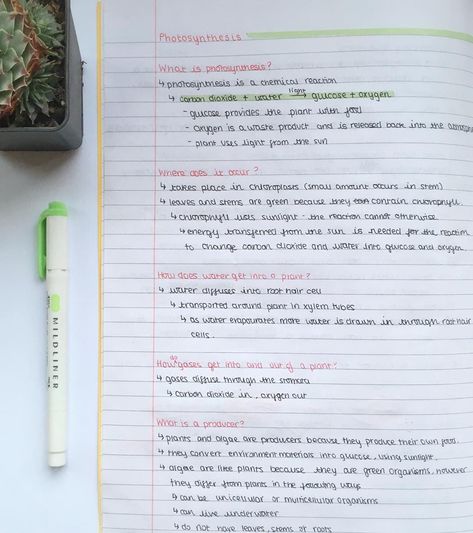 Photosynthesis
What is photosynthesis?
↳ photosynthesis is a chemical reaction
light
↳ carbon dioxide + water → glucose + oxygen
- glucose provides the plant with food
- oxygen is a waste product and is released back into the
- plant uses light from the sun
Where does it occur?
↳ takes place in chloroplasts (small amount occurs in stem)
↳ leaves and stems are green because they contain chlorophyll
↳ chlorophyll uses sunlight - the reaction cannot otherwise
↳ energy transferred from the sun is needed for the reaction
to change carbon dioxide and water into glucose and oxygen.
How does water get into a plant?
↳ water diffuses into root hair cell
↳ transported around plant in xylem tubes
↳ as water evaporates more water is drawn in through root hair
cells.
How do gases get into and out of a plant?
↳ gases diffuse through the stomata
↳ carbon dioxide in, oxygen out
What is a producer?
↳ plants and algae are producers because they produce their own food.
↳ they convert environment materials into glucose, using sunlight.
↳ algae are like plants because they are green organisms, however
they differ from plants in the following ways
↳ can be unicellular or multicellular organisms
↳ can live underwater
↳ do not have leaves, stems or roots
MILDLINER